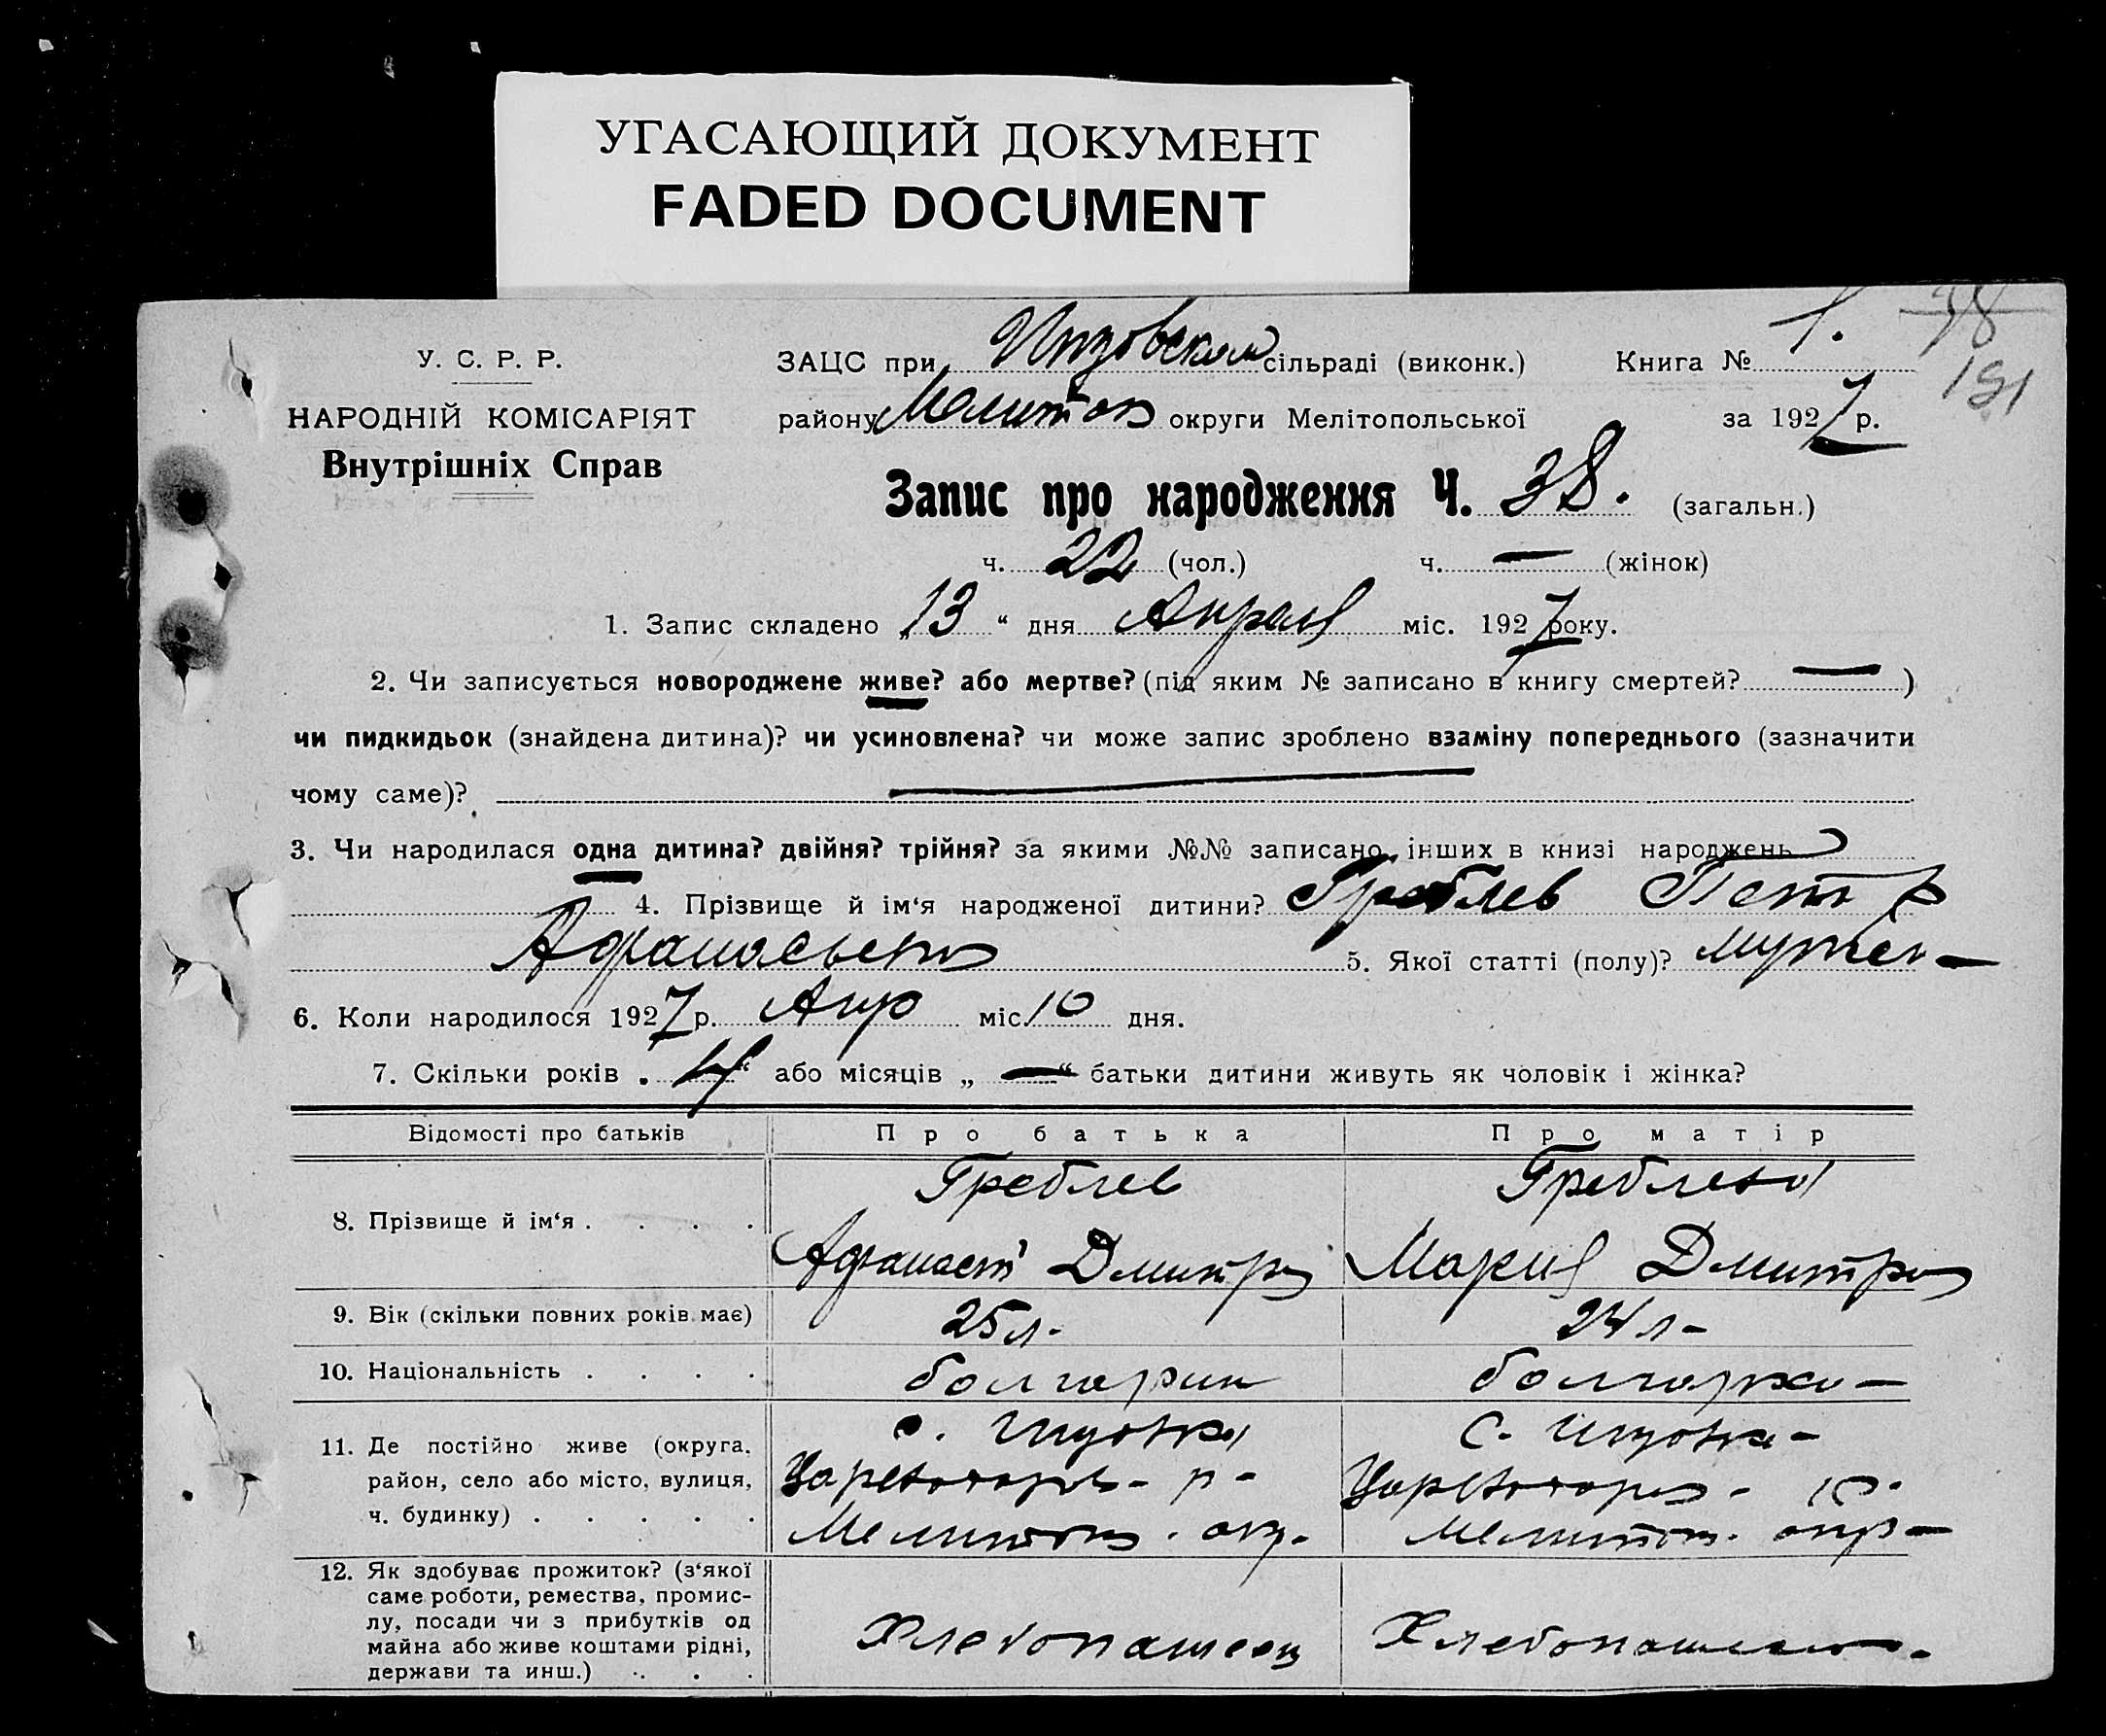 УГАСАЮЩИЙ ДОКУМЕНТ
FADED DOCUMENT
38
181
У. С. Р. Р.
ЗАЦС при сільраді (виконк.) Книга № 1.
НАРОДНІЙ КОМІСАРІЯТ
району Мелитоп округи Мелітопольської за 1927 р.
Внутрішніх Справ
Запис про народження Ч. 38. (загальн.)
ч. 22 (чол.) ч. — (жінок)
1. Запис складено „13“ дня Апреля міс. 1927 року.
2. Чи записується новороджене живе? або мертве? (під яким № записано в книгу смертей? — )
чи пидкидьок (знайдена дитина)? чи усиновлена? чи може запис зроблено взаміну попереднього (зазначити
чому саме)?
3. Чи народилася одна дитина? двійня? трійня? за якими №№ записано інших в книзі народжень
4. Прізвище й ім‘я народженої дитини? Греблев Петр
Афанасьев 5. Якої статті (полу)? мужск —
6. Коли народилося 1927 р. Апр міс. 10 дня.
7. Скільки років „4“ або місяців „—“ батьки дитини живуть як чоловік і жінка?
Відомості про батьків Про батька Про матір
8. Прізвище й ім‘я . . . . Греблев Греблева
Афанасий Дмитр Мария Дмитр
9. Вік (скільки повних років має) 25 л. 24 л –
10. Національність . . . . болгарин болгарка –
11. Де постійно живе (округа, район, село або місто, вулиця, ч. будинку) . . . . .
с. с.
р – р.
Мелитоп. окр. Мелитоп. окр –
12. Як здобуває прожиток? (з‘якої
саме роботи, ремества, промис-
лу, посади чи з прибутків од
майна або живе коштами рідні,
держави та инш.) . . .
Хлебопашец